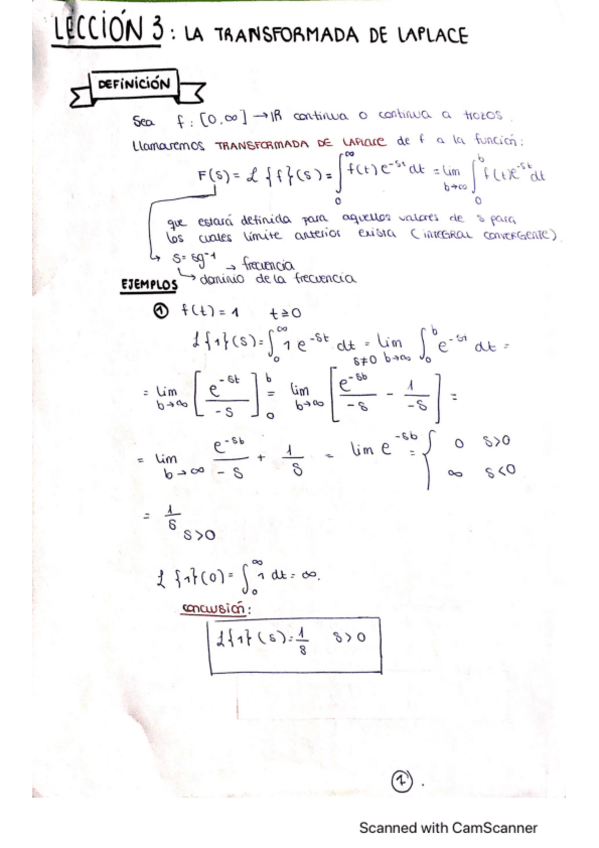 LECCIÓN 3: LA TRANSFORMADA DE LAPLACE
DEFINICIÓN
Sea f: [0,∞] → ℝ continua o continua a trozos.
Llamaremos TRANSFORMADA DE LAPLACE de f a la función:
F(s) = ℒ{f}(s) = ∫₀^∞ f(t) e^{-st} dt = lim_{b→∞} ∫₀^b f(t) e^{-st} dt
que estará definida para aquellos valores de s para
los cuales límite anteriores exista (INTEGRAL CONVERGENTE).
s = sg⁻¹ → frecuencia
→ dominio de la frecuencia
EJEMPLOS
① f(t) = 1 t ≥ 0
ℒ{1}(s) = ∫₀^∞ 1 e^{-st} dt = lim_{s≠0 b→∞} ∫₀^b e^{-st} dt =
= lim_{b→∞} [e^{-st}/-s]₀^b = lim_{b→∞} [e^{-sb}/-s - 1/-s] =
= lim_{b→∞} e^{-sb}/-s + 1/s = lim e^{-sb} = { 0 s>0
∞ s<0
= 1/s s>0
ℒ{1}(0) = ∫₀^∞ 1 dt = ∞.
CONCLUSIÓN:
ℒ{1}(s) = 1/s s>0
1.
Scanned with CamScanner